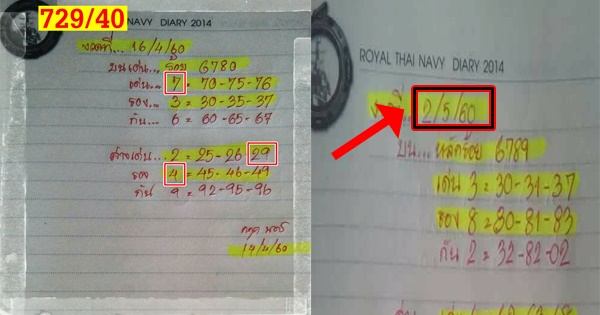 729/40
NAVY DIARY 2014
งวดที่... 16/4/60
บนเด่น... ร้อย 6780
เด่น... 7 = 70-75-76
รอง... 3 = 30-35-37
กัน... 6 = 60-65-67
ล่างเด่น... 2 = 25-26-29
รอง 4 = 45-46-49
กัน 9 = 92-95-96
14/4/60
ROYAL THAI NAVY DIARY 2014
2/5/60
บน... หลักร้อย 6789
เด่น 3 = 30-31-37
รอง 8 = 80-81-83
กัน 2 = 32-82-02